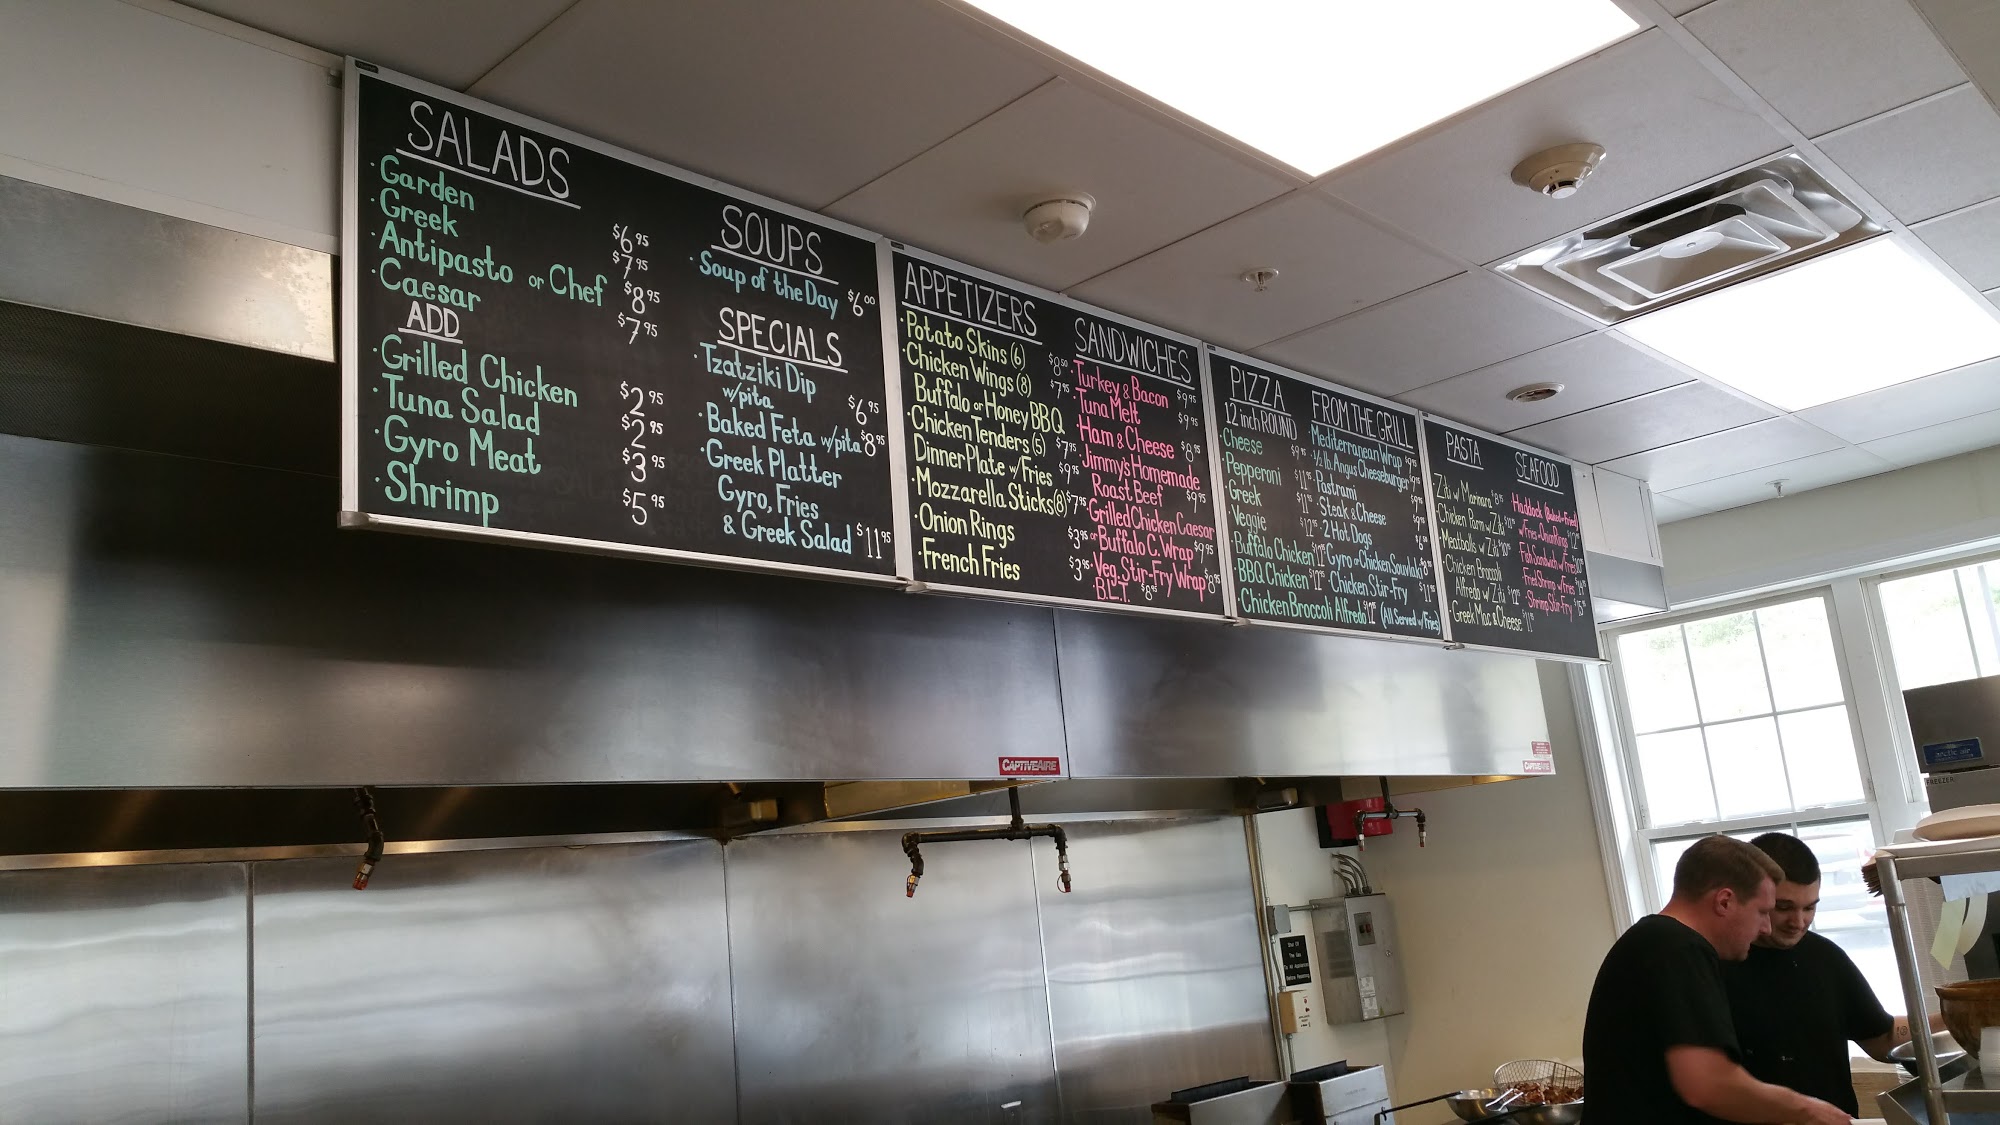 SALADS
· Garden $6.95
· Greek $7.95
· Antipasto or Chef $8.95
· Caesar $7.95
ADD
· Grilled Chicken $2.95
· Tuna Salad $2.95
· Gyro Meat $3.95
· Shrimp $5.95
SOUPS
· Soup of the Day $6.00
SPECIALS
· Tzatziki Dip
w/pita $6.95
· Baked Feta w/pita $8.95
· Greek Platter
Gyro, Fries
& Greek Salad $11.95
APPETIZERS
· Potato Skins (6) $8.50
· Chicken Wings (8) $7.95
Buffalo or Honey BBQ
· Chicken Tenders (5) $7.95
Dinner Plate w/Fries $9.95
· Mozzarella Sticks (8) $7.95
· Onion Rings $3.95
· French Fries $3.95
SANDWICHES
· Turkey & Bacon $9.95
· Tuna Melt $9.95
· Ham & Cheese $8.95
· Jimmy's Homemade
Roast Beef $9.95
· Grilled Chicken Caesar
or Buffalo C. Wrap $9.95
· Veg. Stir-Fry Wrap $8.95
B.L.T. $8.95
PIZZA
12 inch ROUND
· Cheese $9.95
· Pepperoni $11.95
· Greek $11.95
· Veggie $12.95
· Buffalo Chicken $12.95
· BBQ Chicken $12.95
· Chicken Broccoli Alfredo $12.95
FROM THE GRILL
· Mediterranean Wrap $9.95
· ½ lb. Angus Cheeseburger $9.95
· Pastrami $9.95
· Steak & Cheese $9.95
· 2 Hot Dogs
· Gyro or Chicken Souvlaki $8.95
· Chicken Stir-Fry $11.95
(All Served w/Fries)
PASTA
· Ziti w/ Marinara $8.95
· Chicken Parm w/ Ziti
· Meatballs w/ Ziti
· Chicken Broccoli
Alfredo w/ Ziti $12.95
· Greek Mac & Cheese
SEAFOOD
Haddock (Baked or Fried)
w/Fries or Onion Rings
Fish Sandwich w/Fries
Fried Shrimp w/Fries
Shrimp Stir-Fry
CAPTIVEAIRE
CAPTIVEAIRE
arctic air
FREEZER